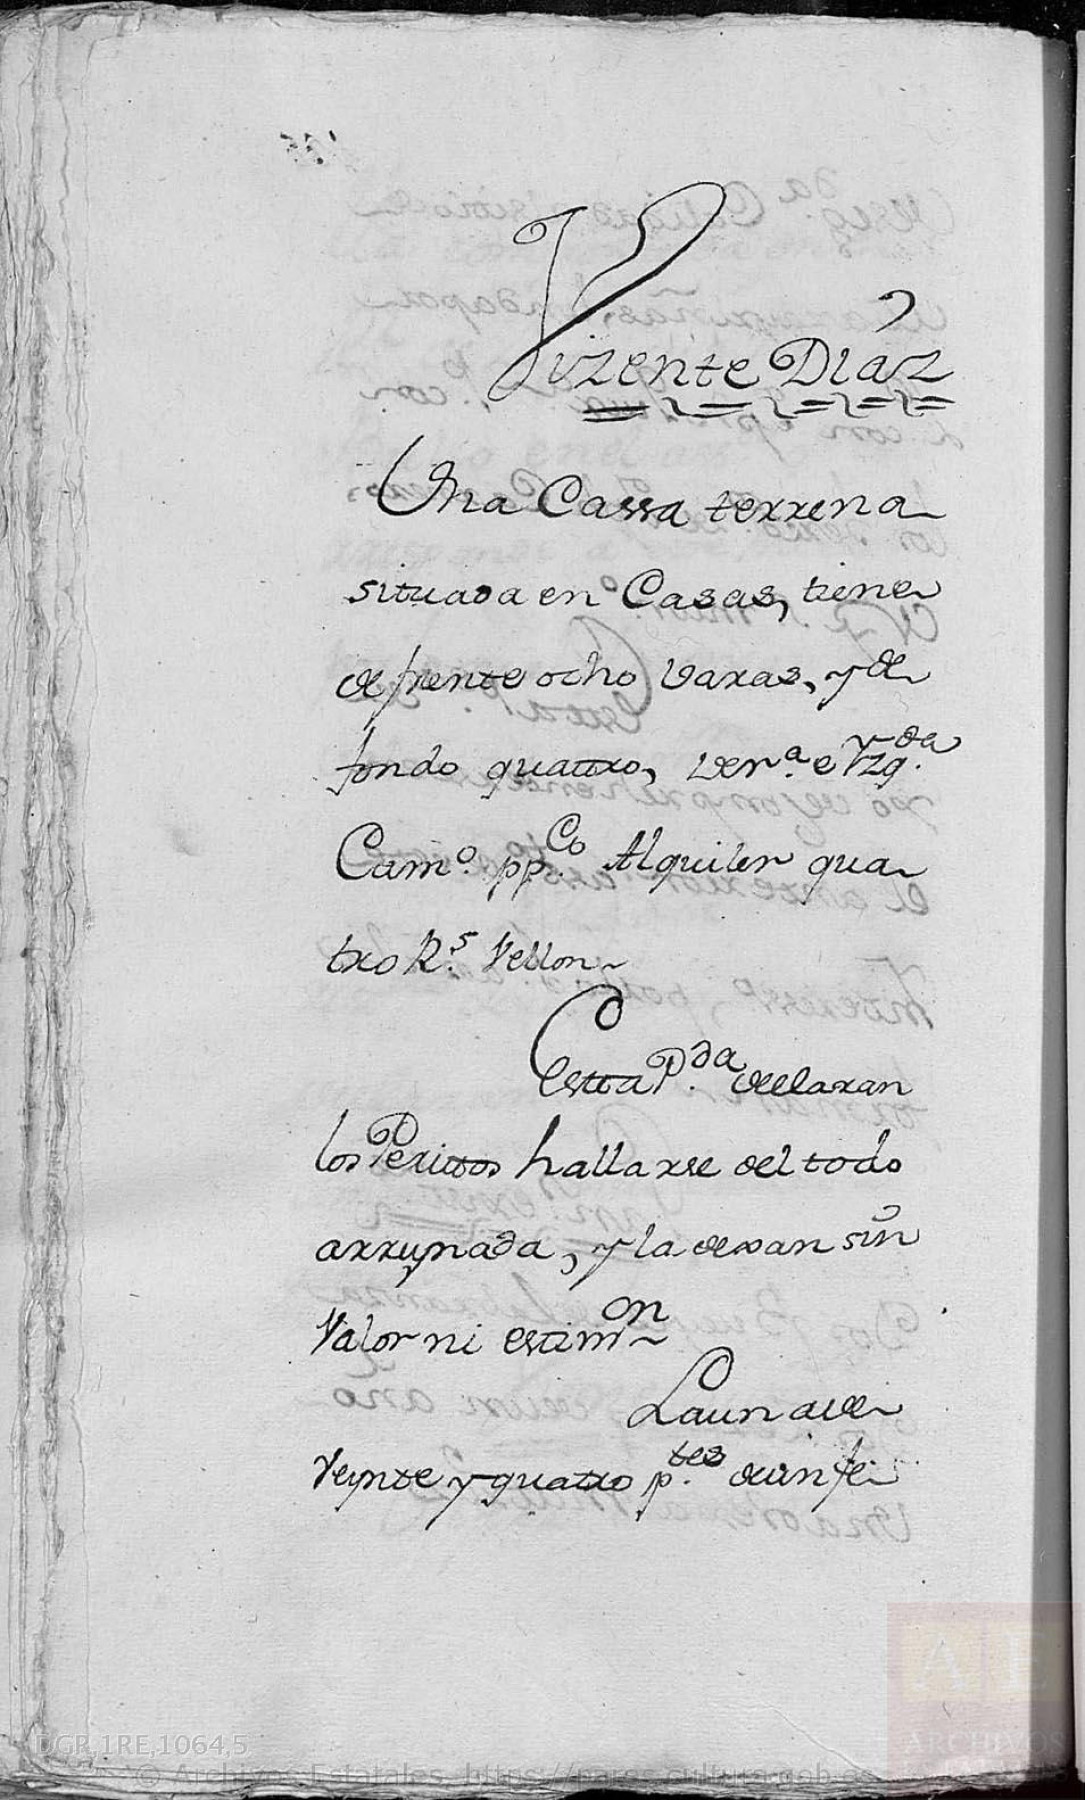 Vizente Diaz
Una Cassa terrena
situada en Casas, tiene
de frente ocho varas, y de
fondo quattro, Der.ª e Yzq.da
Cam.º pp.co Alquiler qua
tro R.s Vellon
Estta P.da declaran
los Perittos hallarse del todo
arruynada, y la dexan sin
Valor ni estim.on
La una de
Veynte y quatro p.tes de un fe
DGR,1RE,1064,5
© Archivos Estatales, https://pares.cultura.gob.es
AE
ARCHIVOS